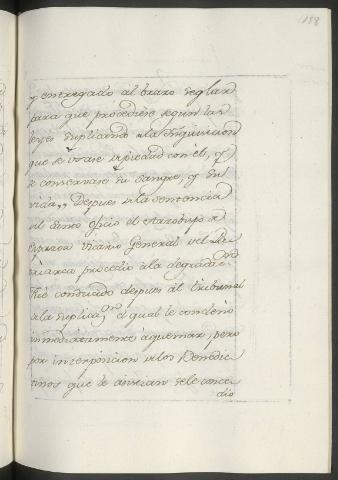 188
y entregado al brazo seglar
para que procediese segun las
leyes suplicando a la Inquisicion
que se usase de piedad con el, y
se conservase su sangre, y su
vida,, Despues de la sentencia
del Santo oficio el Arzobispo de
Vicario General del Pa
triarca procedio a la degradaon
fue conducido despues al tribunal
de la suplicaon el qual le condenó
inmediatamente a quemar, pero
por interposicion de los Benedic
tinos que le asistian se le conce
dio